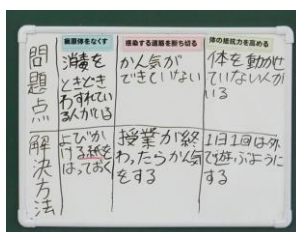 病原体をなくす
感染する道筋を断ち切る
体の抵抗力を高める
問題点
消毒を
ときどき
わすれてい
る人がいる
かん気が
できていない
体を動かせ
ていない人が
いる
解決方法
よびか
ける紙を
はっておく
授業が終
わったらかん気
をする
1日1回は外
で遊ぶように
する